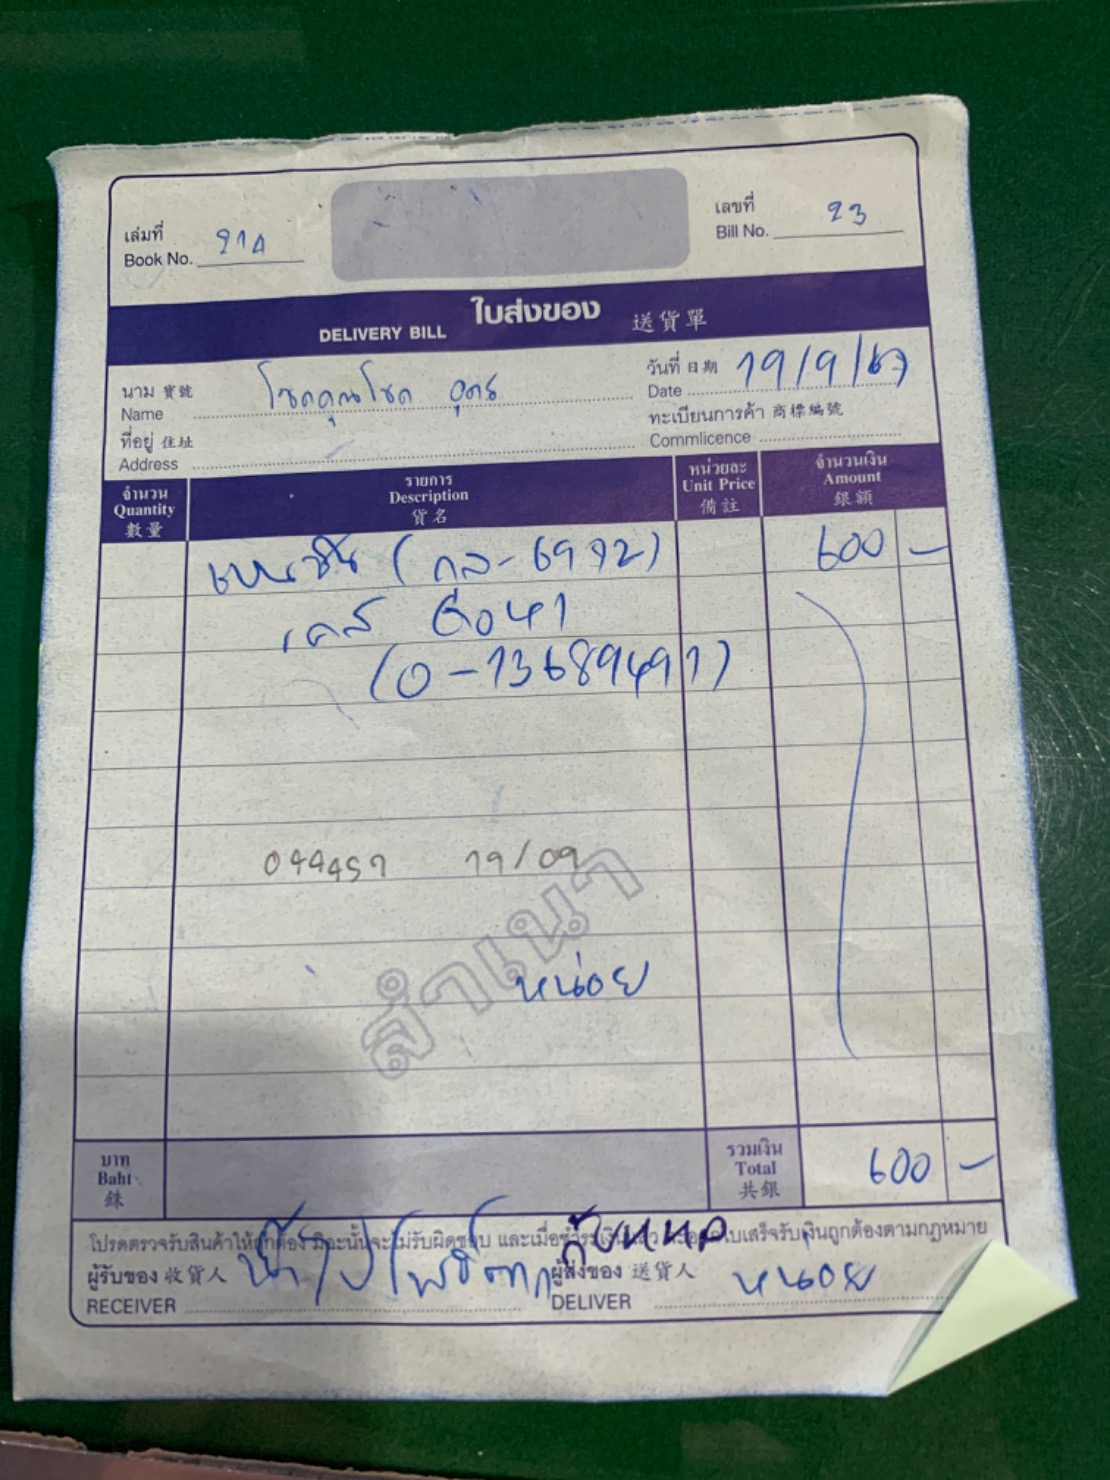 เล่มที่ เลขที่
Book No. 214 Bill No. 23
ใบส่งของ
DELIVERY BILL 送貨單
นาม 寶號 โชคคูณโชค อุดร วันที่ 日期 19/9/67
Name Date
ที่อยู่ 住址 ทะเบียนการค้า 商標編號
Address Commlicence
จำนวน รายการ หน่วยละ จำนวนเงิน
Quantity Description Unit Price Amount
數量 貨名 備註 銀額
เบนซิน 600 –
เคส
(0-13689491)
044457 19/09
สำเนา
หน่อย
บาท รวมเงิน
Baht Total 600 –
銖 共銀
โปรดตรวจรับสินค้าให้ถูกต้อง มิฉะนั้นจะไม่รับผิดชอบ และเมื่อชำระเงินแล้ว ใบเสร็จรับเงินถูกต้องตามกฎหมาย
ผู้รับของ 收貨人 ผู้ส่งของ 送貨人 หน่อย
RECEIVER DELIVER